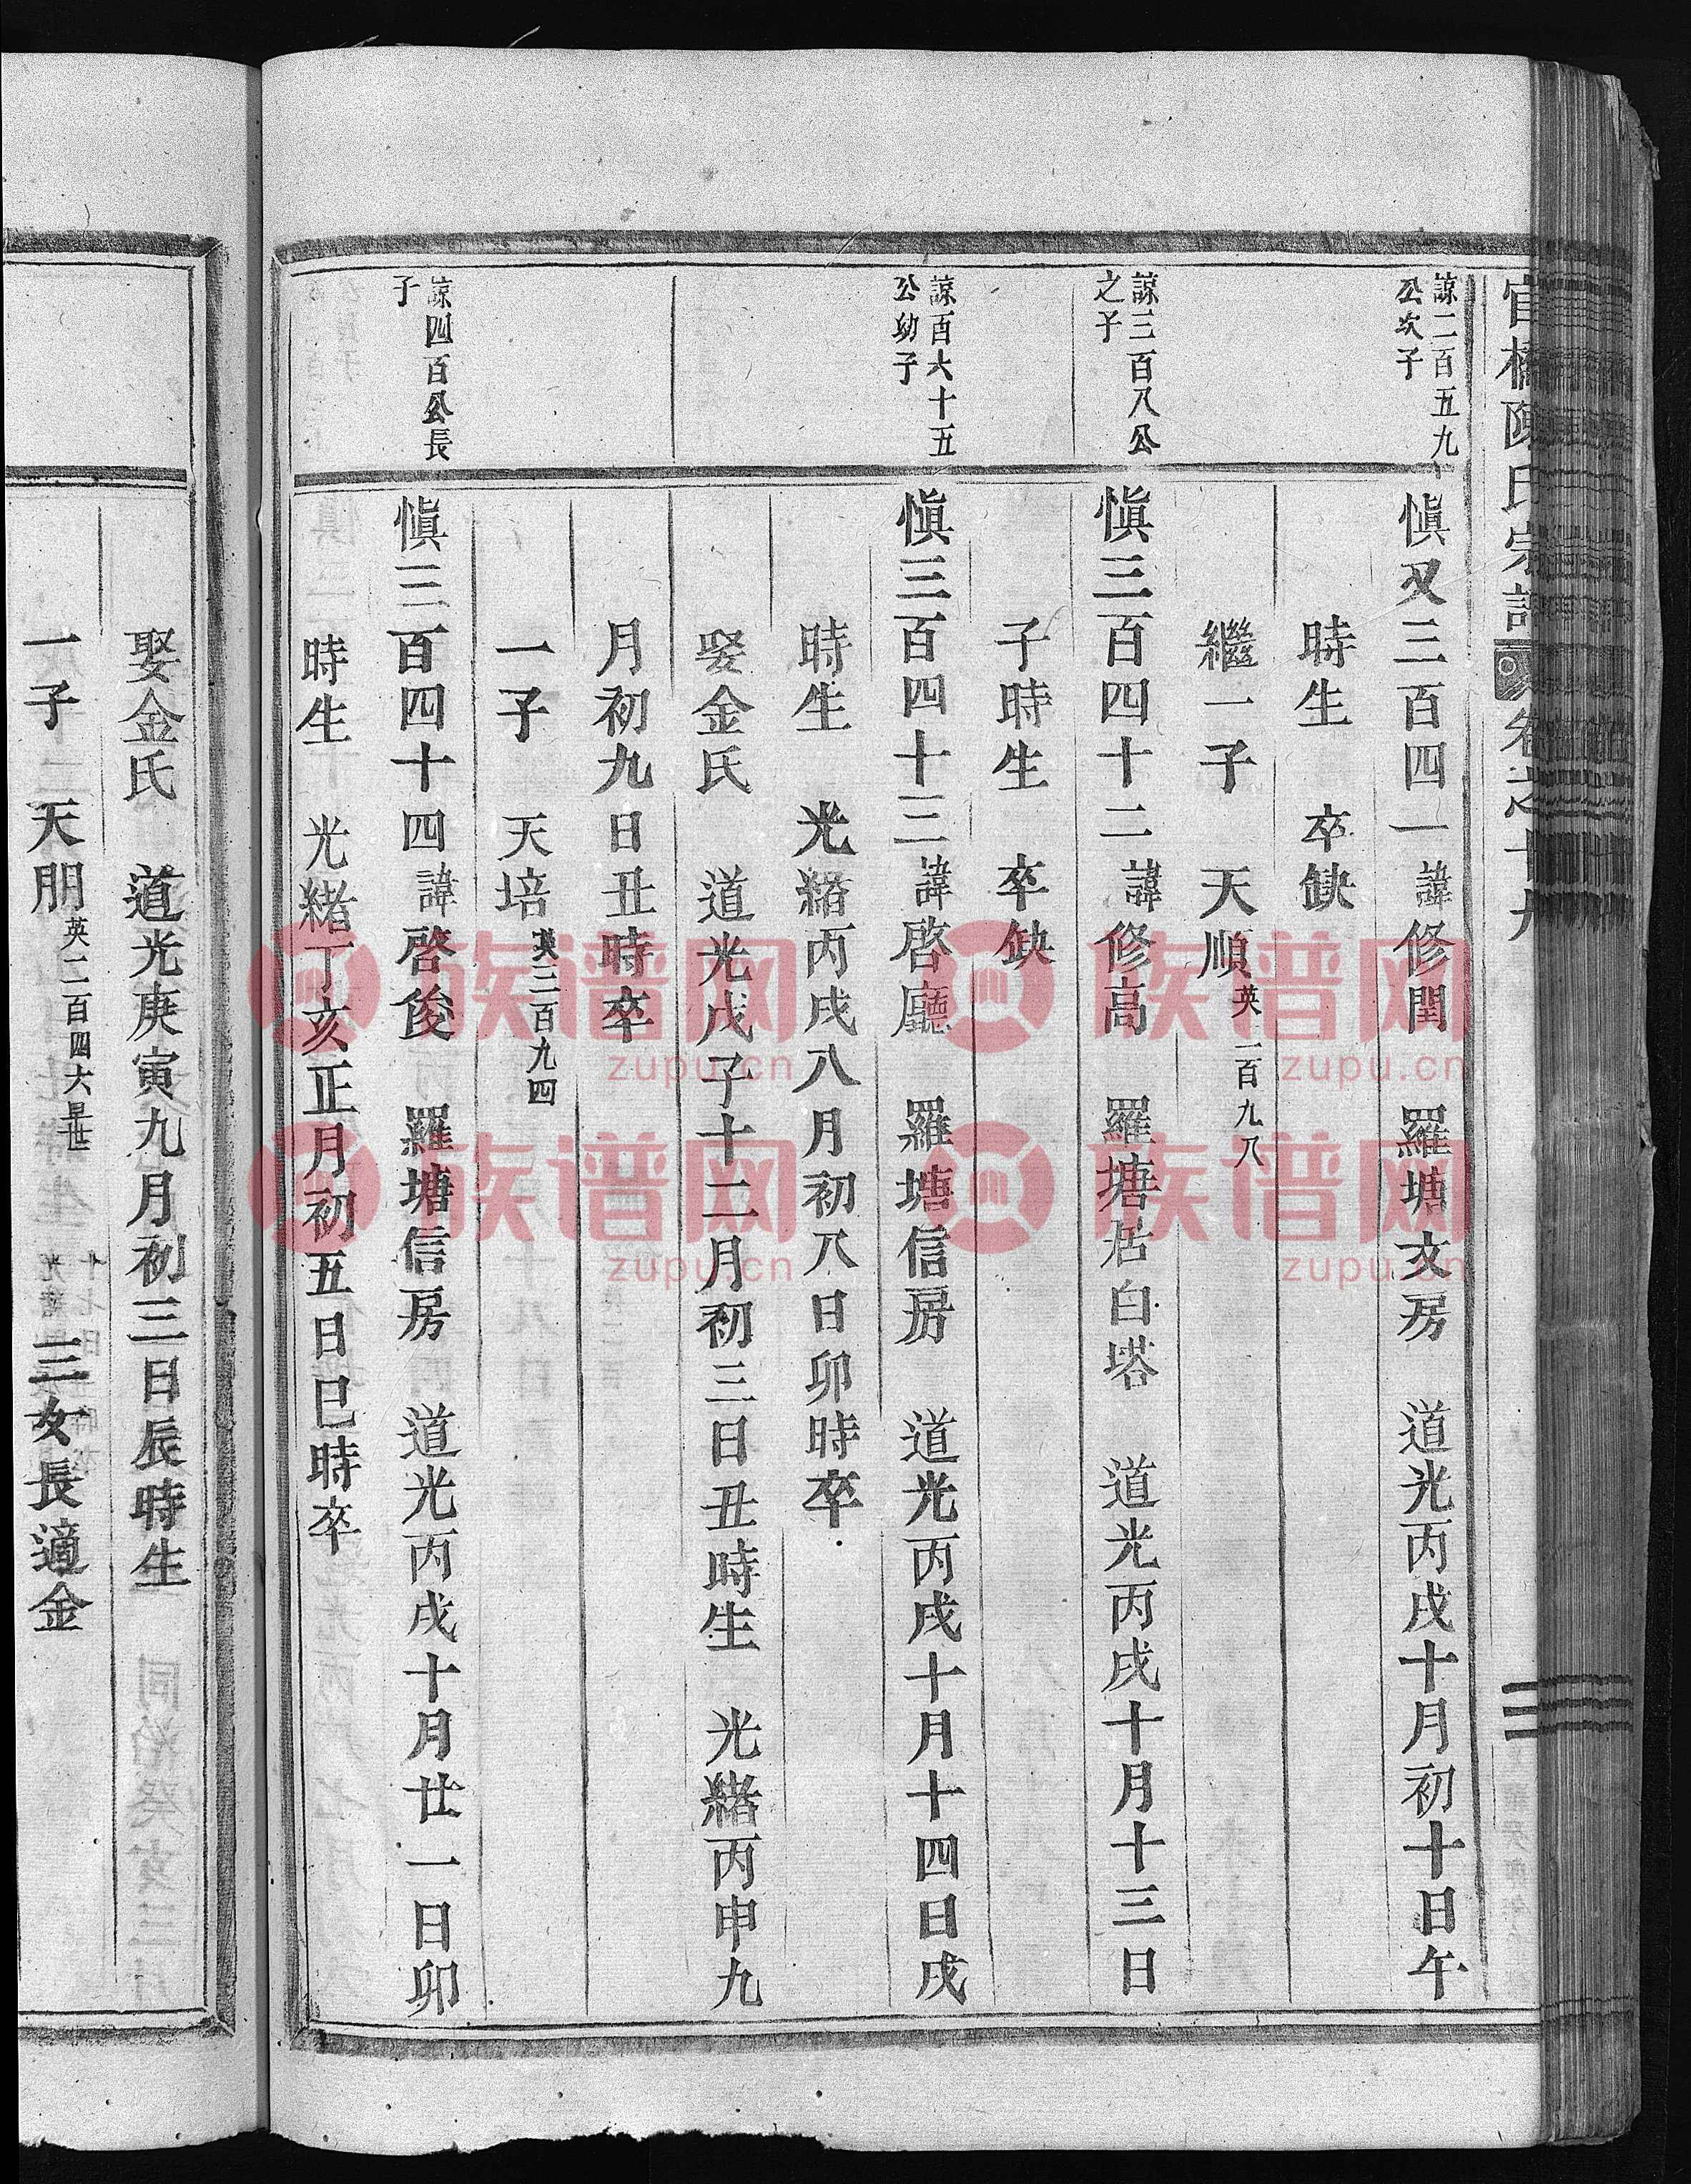 官橋陳氏宗譜 卷之十九
諒二百五九
公次子
慎又三百四一諱修閏 羅塘文房 道光丙戌十月初十日午
時生 卒缺
繼一子 天順英一百九八
諒三百八公
之子
慎三百四十二諱修高 羅塘居白塔 道光丙戌十月十三日
子時生 卒缺
諒百六十五
公幼子
慎三百四十三諱啓廳 羅塘信房 道光丙戌十月十四日戌
時生 光緒丙戌八月初八日卯時卒
娶金氏 道光戊子十二月初三日丑時生 光緒丙申九
月初九日丑時卒
一子 天培英三百九四
諒四百公長
子
慎三百四十四諱啓俊 羅塘信房 道光丙戌十月廿一日卯
時生 光緒丁亥正月初五日巳時卒
娶金氏 道光庚寅九月初三日辰時生
一子 天朋英二百四六 三女長適金
族谱网
zupu.cn
族谱网
zupu.cn
族谱网
zupu.cn
族谱网
zupu.cn